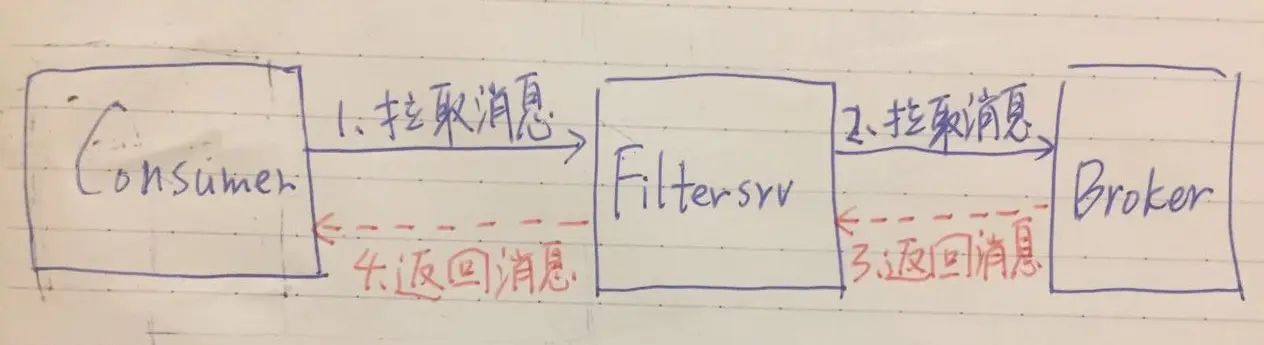 1、拉取消息
2、拉取消息
Consumer
Filtersrv
Broker
4、返回消息
3、返回消息